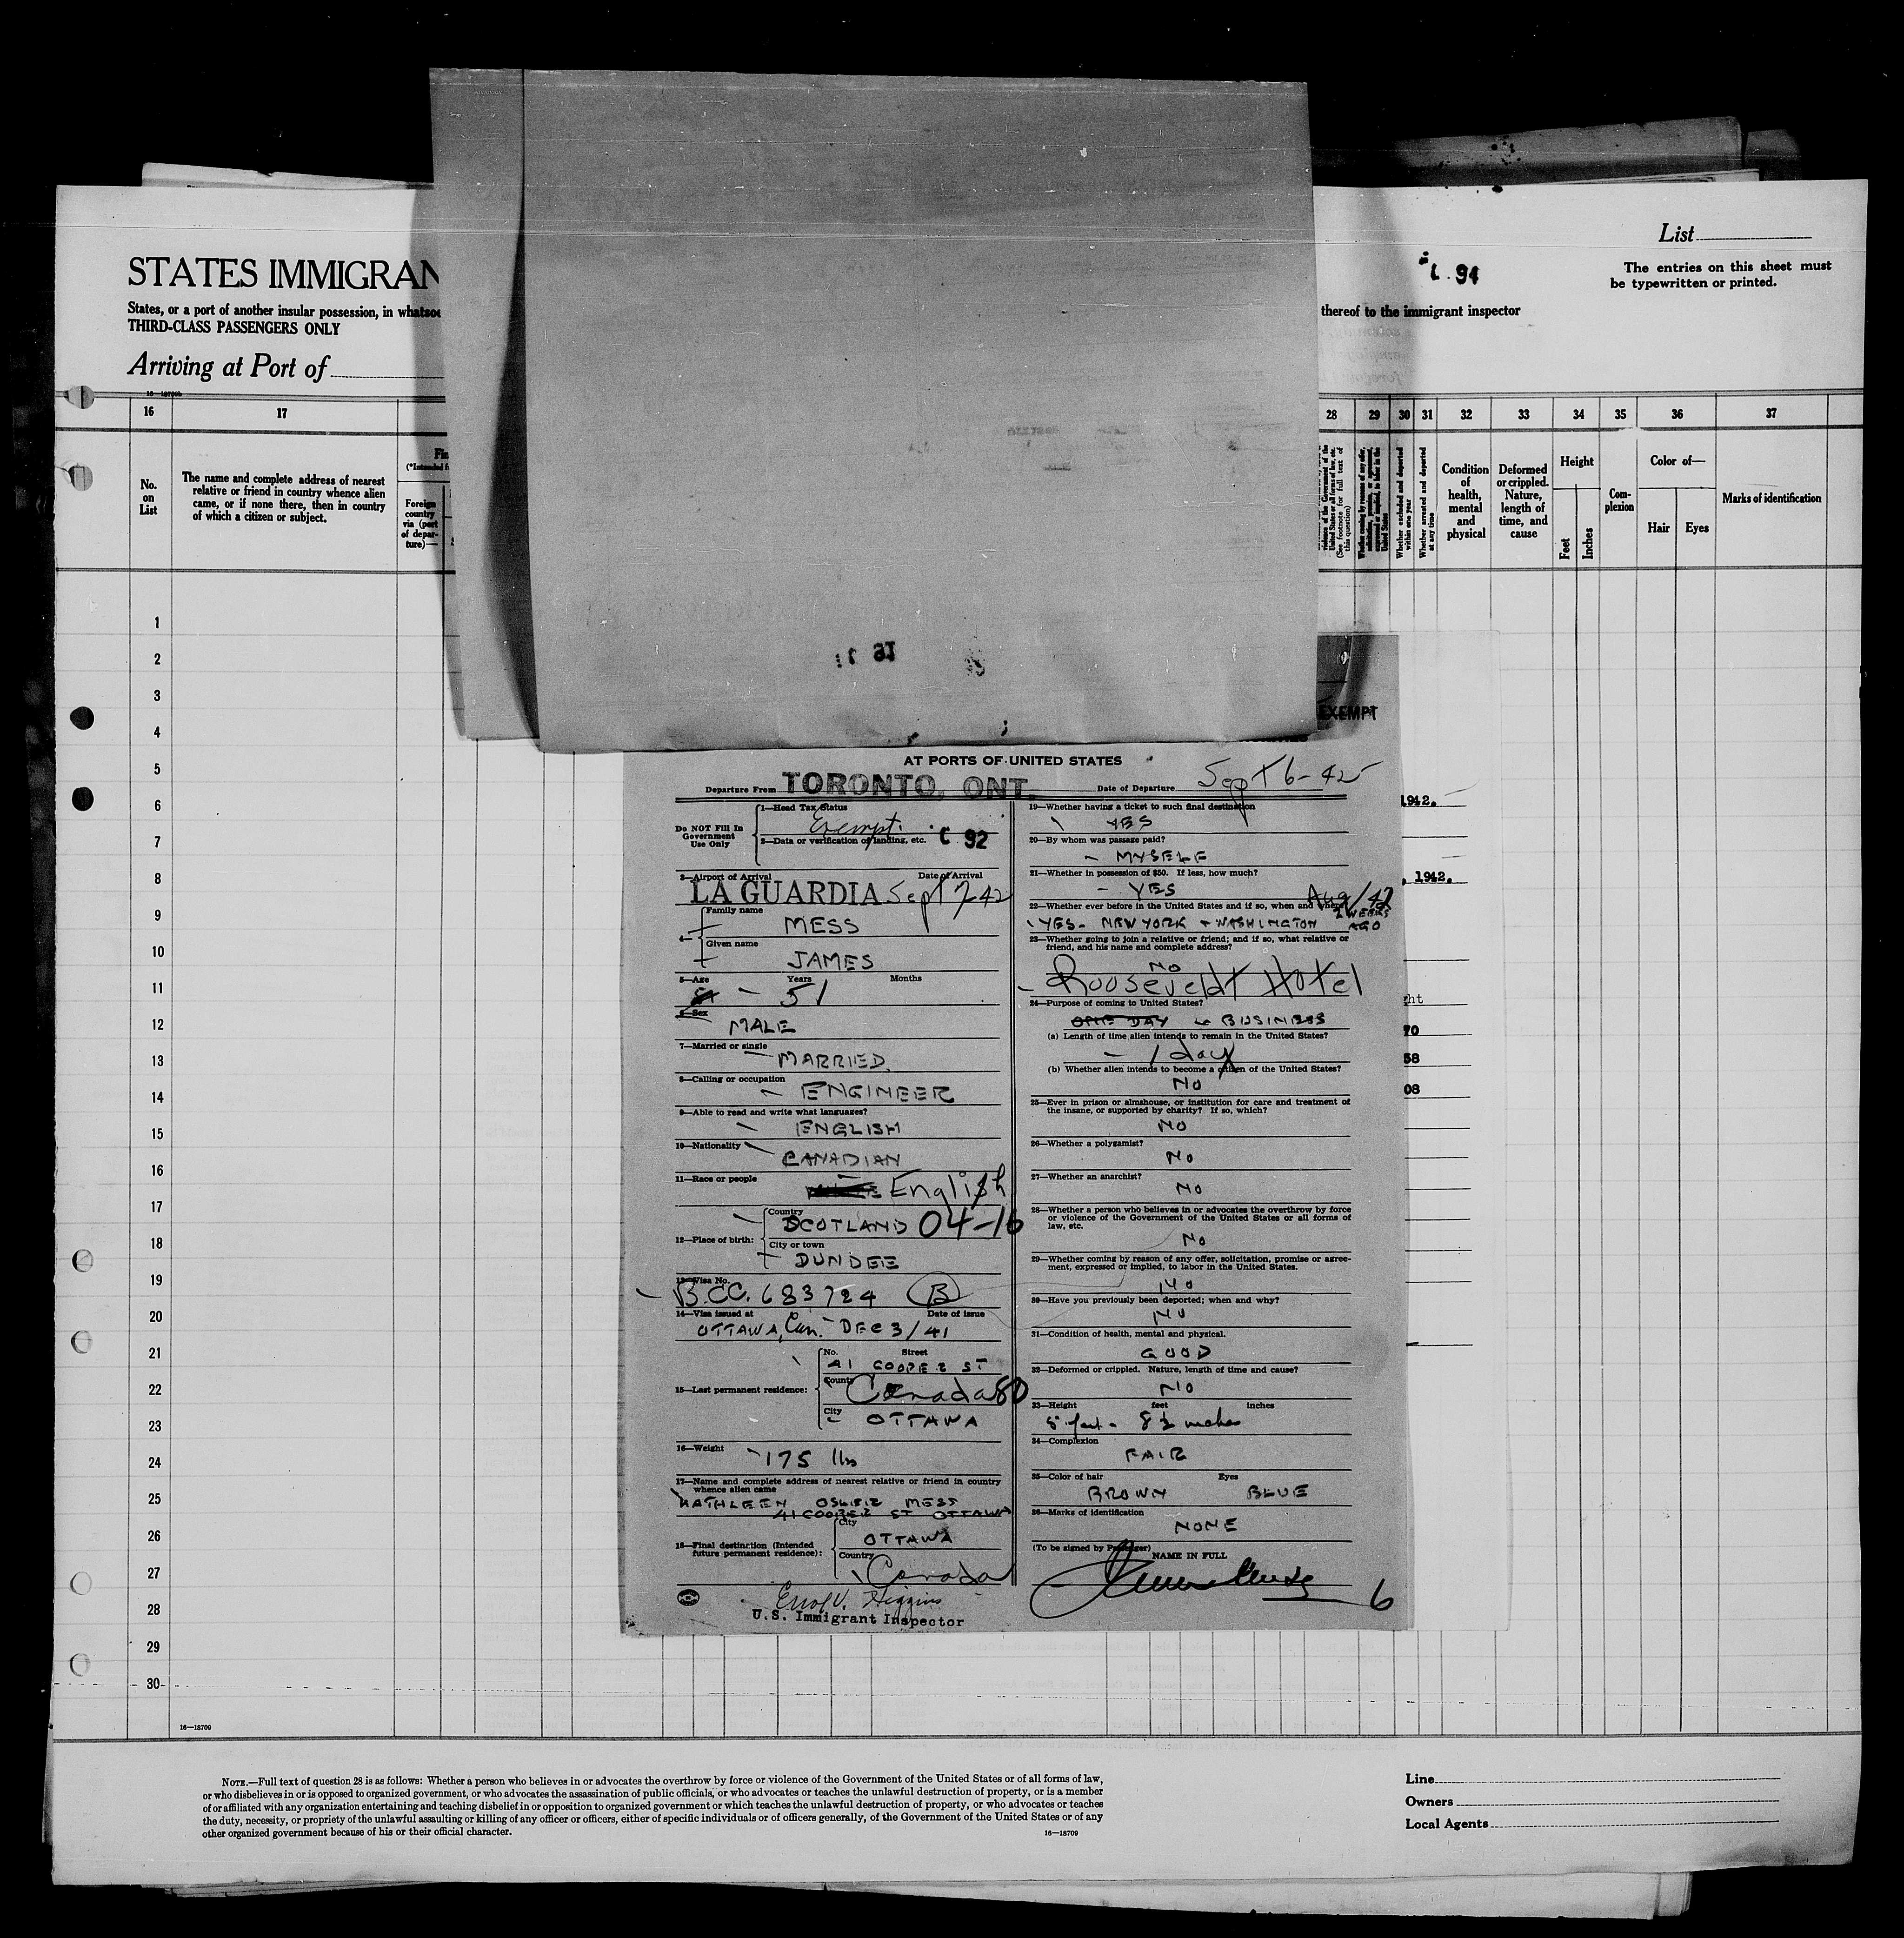 List
STATES IMMIGRAN
The entries on this sheet must
be typewritten or printed.
States, or a port of another insular possession, in whatsoe
thereof to the immigrant inspector
THIRD-CLASS PASSENGERS ONLY
Arriving at Port of
16—18709b
16 17 28 29 30 31 32 33 34 35 36 37
No.
on
List
The name and complete address of nearest
relative or friend in country whence alien
came, or if none there, then in country
of which a citizen or subject.
Foreign
country
via (port
of depar-
ture)—
violence of the Government of the
United States or all forms of law, etc.
(See footnote for full text of
this question)
Whether coming by reason of any offer,
solicitation, promise, or agreement,
expressed or implied, to labor in the
United States
Whether excluded and deported
within one year
Whether arrested and deported
at any time
Condition
of
health,
mental
and
physical
Deformed
or crippled.
Nature,
length of
time, and
cause
Height
Feet
Inches
Com-
plexion
Color of—
Hair Eyes
Marks of identification
1
2
3
4
5
6
7
8
9
10
11
12
13
14
15
16
17
18
19
20
21
22
23
24
25
26
27
28
29
30
16—18709
EXEMPT
AT PORTS OF UNITED STATES
Departure From TORONTO, ONT. Date of Departure Sept 6-42
Do NOT Fill In
Government
Use Only
1—Head Tax Status
Exempt.
2—Data or verification of landing, etc. C 92
3—Airport of Arrival Date of Arrival
LA GUARDIA Sept 7-42
4— Family name
MESS
Given name
JAMES
5—Age Years Months
51
6—Sex
MALE
7—Married or single
MARRIED.
8—Calling or occupation
ENGINEER
9—Able to read and write what languages?
ENGLISH
10—Nationality
CANADIAN
11—Race or people
English
12—Place of birth: Country
SCOTLAND 04-16
City or town
DUNDEE
13—Visa No.
B.CC. 683724 B
14—Visa issued at Date of issue
OTTAWA, Can. DEC 3/41
15—Last permanent residence: No. Street
41 COOPER ST
County
Canada 80
City
OTTAWA
16—Weight
175 lbs
17—Name and complete address of nearest relative or friend in country
whence alien came
KATHLEEN OSLER MESS
41 COOPER ST OTTAWA
18—Final destination (Intended
future permanent residence):
City
OTTAWA
Country
Canada
Errol V. Higgins
U.S. Immigrant Inspector
19—Whether having a ticket to such final destination
YES
20—By whom was passage paid?
MYSELF
21—Whether in possession of $50. If less, how much?
YES
22—Whether ever before in the United States and if so, when and where?
Aug/42
2 WEEKS
YES- NEW YORK + WASHINGTON AGO
23—Whether going to join a relative or friend; and if so, what relative or
friend, and his name and complete address?
NO
Roosevelt Hotel
24—Purpose of coming to United States?
ONE DAY BUSINESS
(a) Length of time alien intends to remain in the United States?
1 day
(b) Whether alien intends to become a citizen of the United States?
NO
25—Ever in prison or almshouse, or institution for care and treatment of
the insane, or supported by charity? If so, which?
NO
26—Whether a polygamist?
NO
27—Whether an anarchist?
NO
28—Whether a person who believes in or advocates the overthrow by force
or violence of the Government of the United States or all forms of
law, etc.
NO
29—Whether coming by reason of any offer, solicitation, promise or agree-
ment, expressed or implied, to labor in the United States.
NO
30—Have you previously been deported; when and why?
NO
31—Condition of health, mental and physical.
GOOD
32—Deformed or crippled. Nature, length of time and cause?
NO
33—Height feet inches
5 feet - 8½ inches
34—Complexion
FAIR
35—Color of hair Eyes
BROWN BLUE
36—Marks of identification
NONE
(To be signed by Passenger)
NAME IN FULL
6
1942.
, 1942.
ght
70
58
08
NOTE.—Full text of question 28 is as follows: Whether a person who believes in or advocates the overthrow by force or violence of the Government of the United States or of all forms of law,
or who disbelieves in or is opposed to organized government, or who advocates the assassination of public officials, or who advocates or teaches the unlawful destruction of property, or is a member
of or affiliated with any organization entertaining and teaching disbelief in or opposition to organized government or which teaches the unlawful destruction of property, or who advocates or teaches
the duty, necessity, or propriety of the unlawful assaulting or killing of any officer or officers, either of specific individuals or of officers generally, of the Government of the United States or of any
other organized government because of his or their official character.
16—18709
Line
Owners
Local Agents